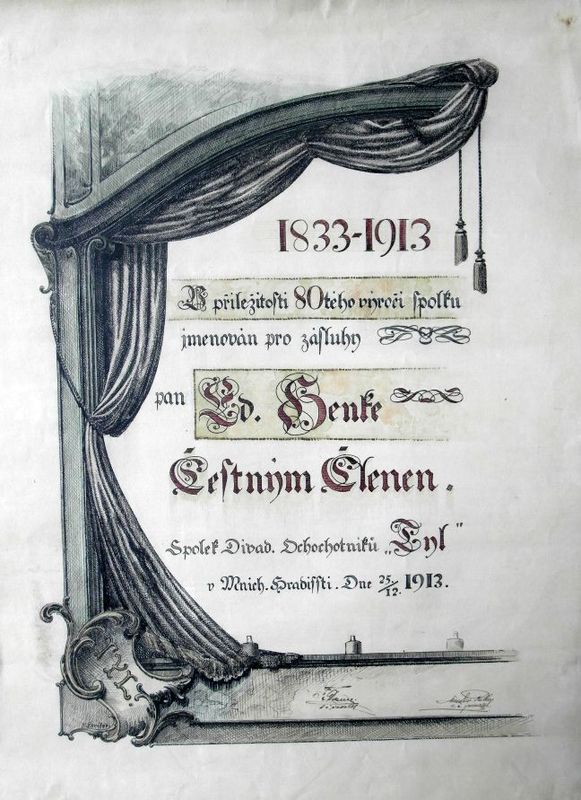 1833-1913
V příležitosti 80tého výročí spolku
jmenován pro zásluhy
pan Ed. Henke
Čestným Členen.
Spolek Divad. Ochochotníků „Tyl"
v Mnich. Hradišsti. Dne 25/12. 1913.
TYL.